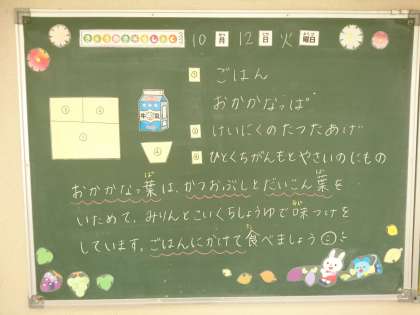 きょうのきゅうしょく 10月 12日 火曜日
① ごはん
おかかなっぱ
② けいにくのたつたあげ
③ ひとくちがんもとやさいのにもの
牛乳
おかかなっ葉は、かつおぶしとだいこん葉を
いためて、みりんとこいくちしょうゆで味つけを
しています。ごはんにかけて食べましょう